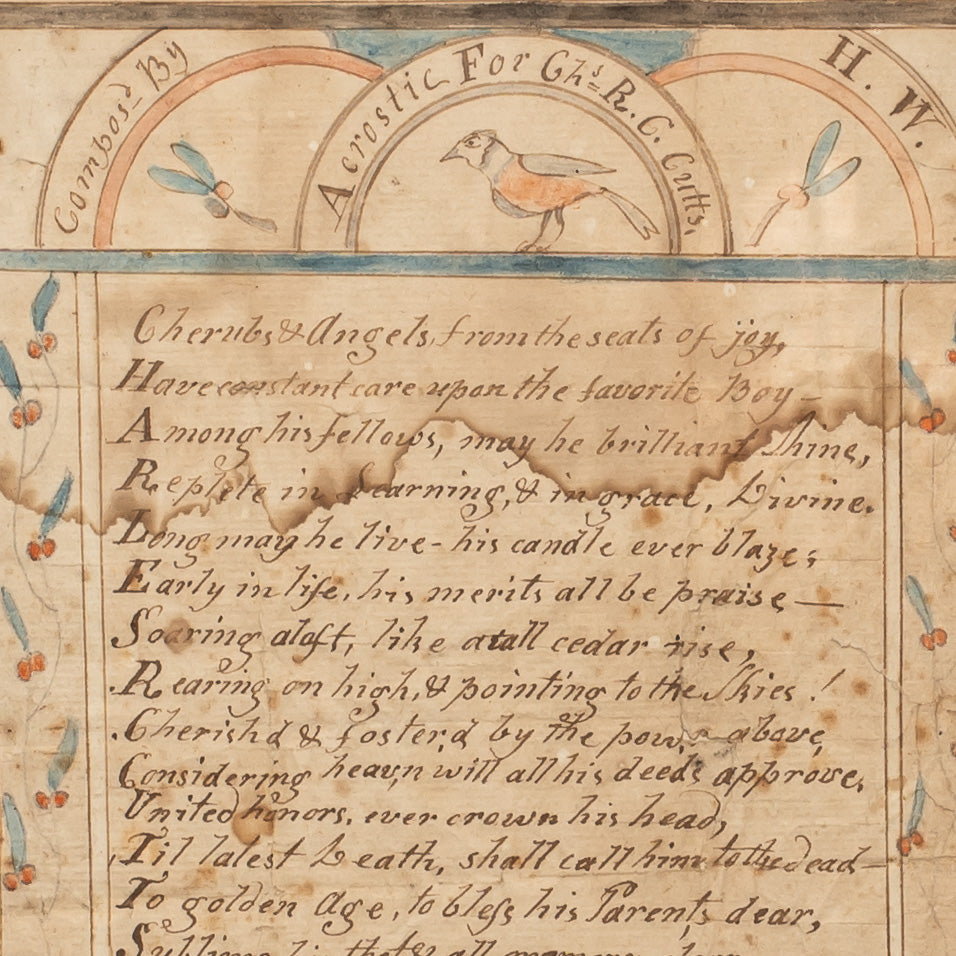 Compos'd By
Acrostic For Chs. R. C. Cutts.
H. W.
Cherubs & Angels, from the seats of joy,
Have constant care upon the favorite Boy —
Among his fellows, may he brilliant shine,
Replete in Learning, & in grace, Divine.
Long may he live - his candle ever blaze;
Early in life, his merits all be praise —
Soaring aloft, like a tall cedar rise,
Rearing on high, & pointing to the Skies!
Cherish'd & foster'd by the pow'r above,
Considering heav'n will all his deeds approve,
United honors, ever crown his head,
Til latest Death, shall call him to the dead —
To golden Age, to bleſs his Parents dear,
& all